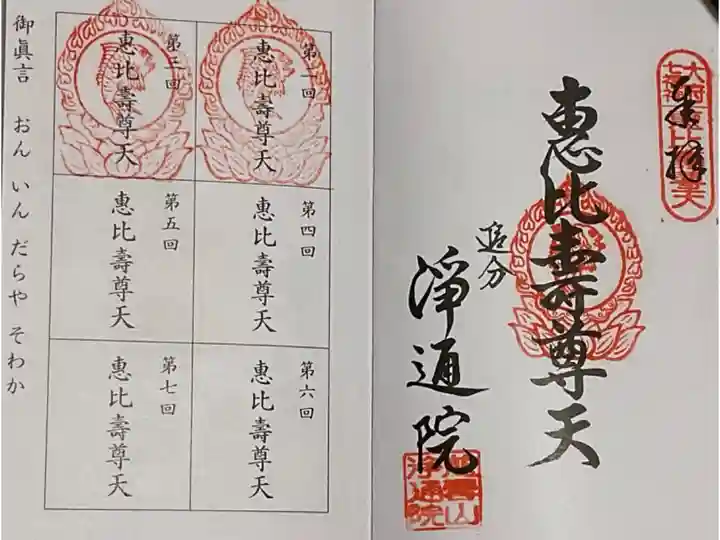 奉拝
惠比壽尊天
追分
淨通院
淨通院
第一回
惠比壽尊天
第三回
惠比壽尊天
第四回
惠比壽尊天
第五回
惠比壽尊天
第六回
惠比壽尊天
第七回
惠比壽尊天
御眞言 おん いん だらや そわか